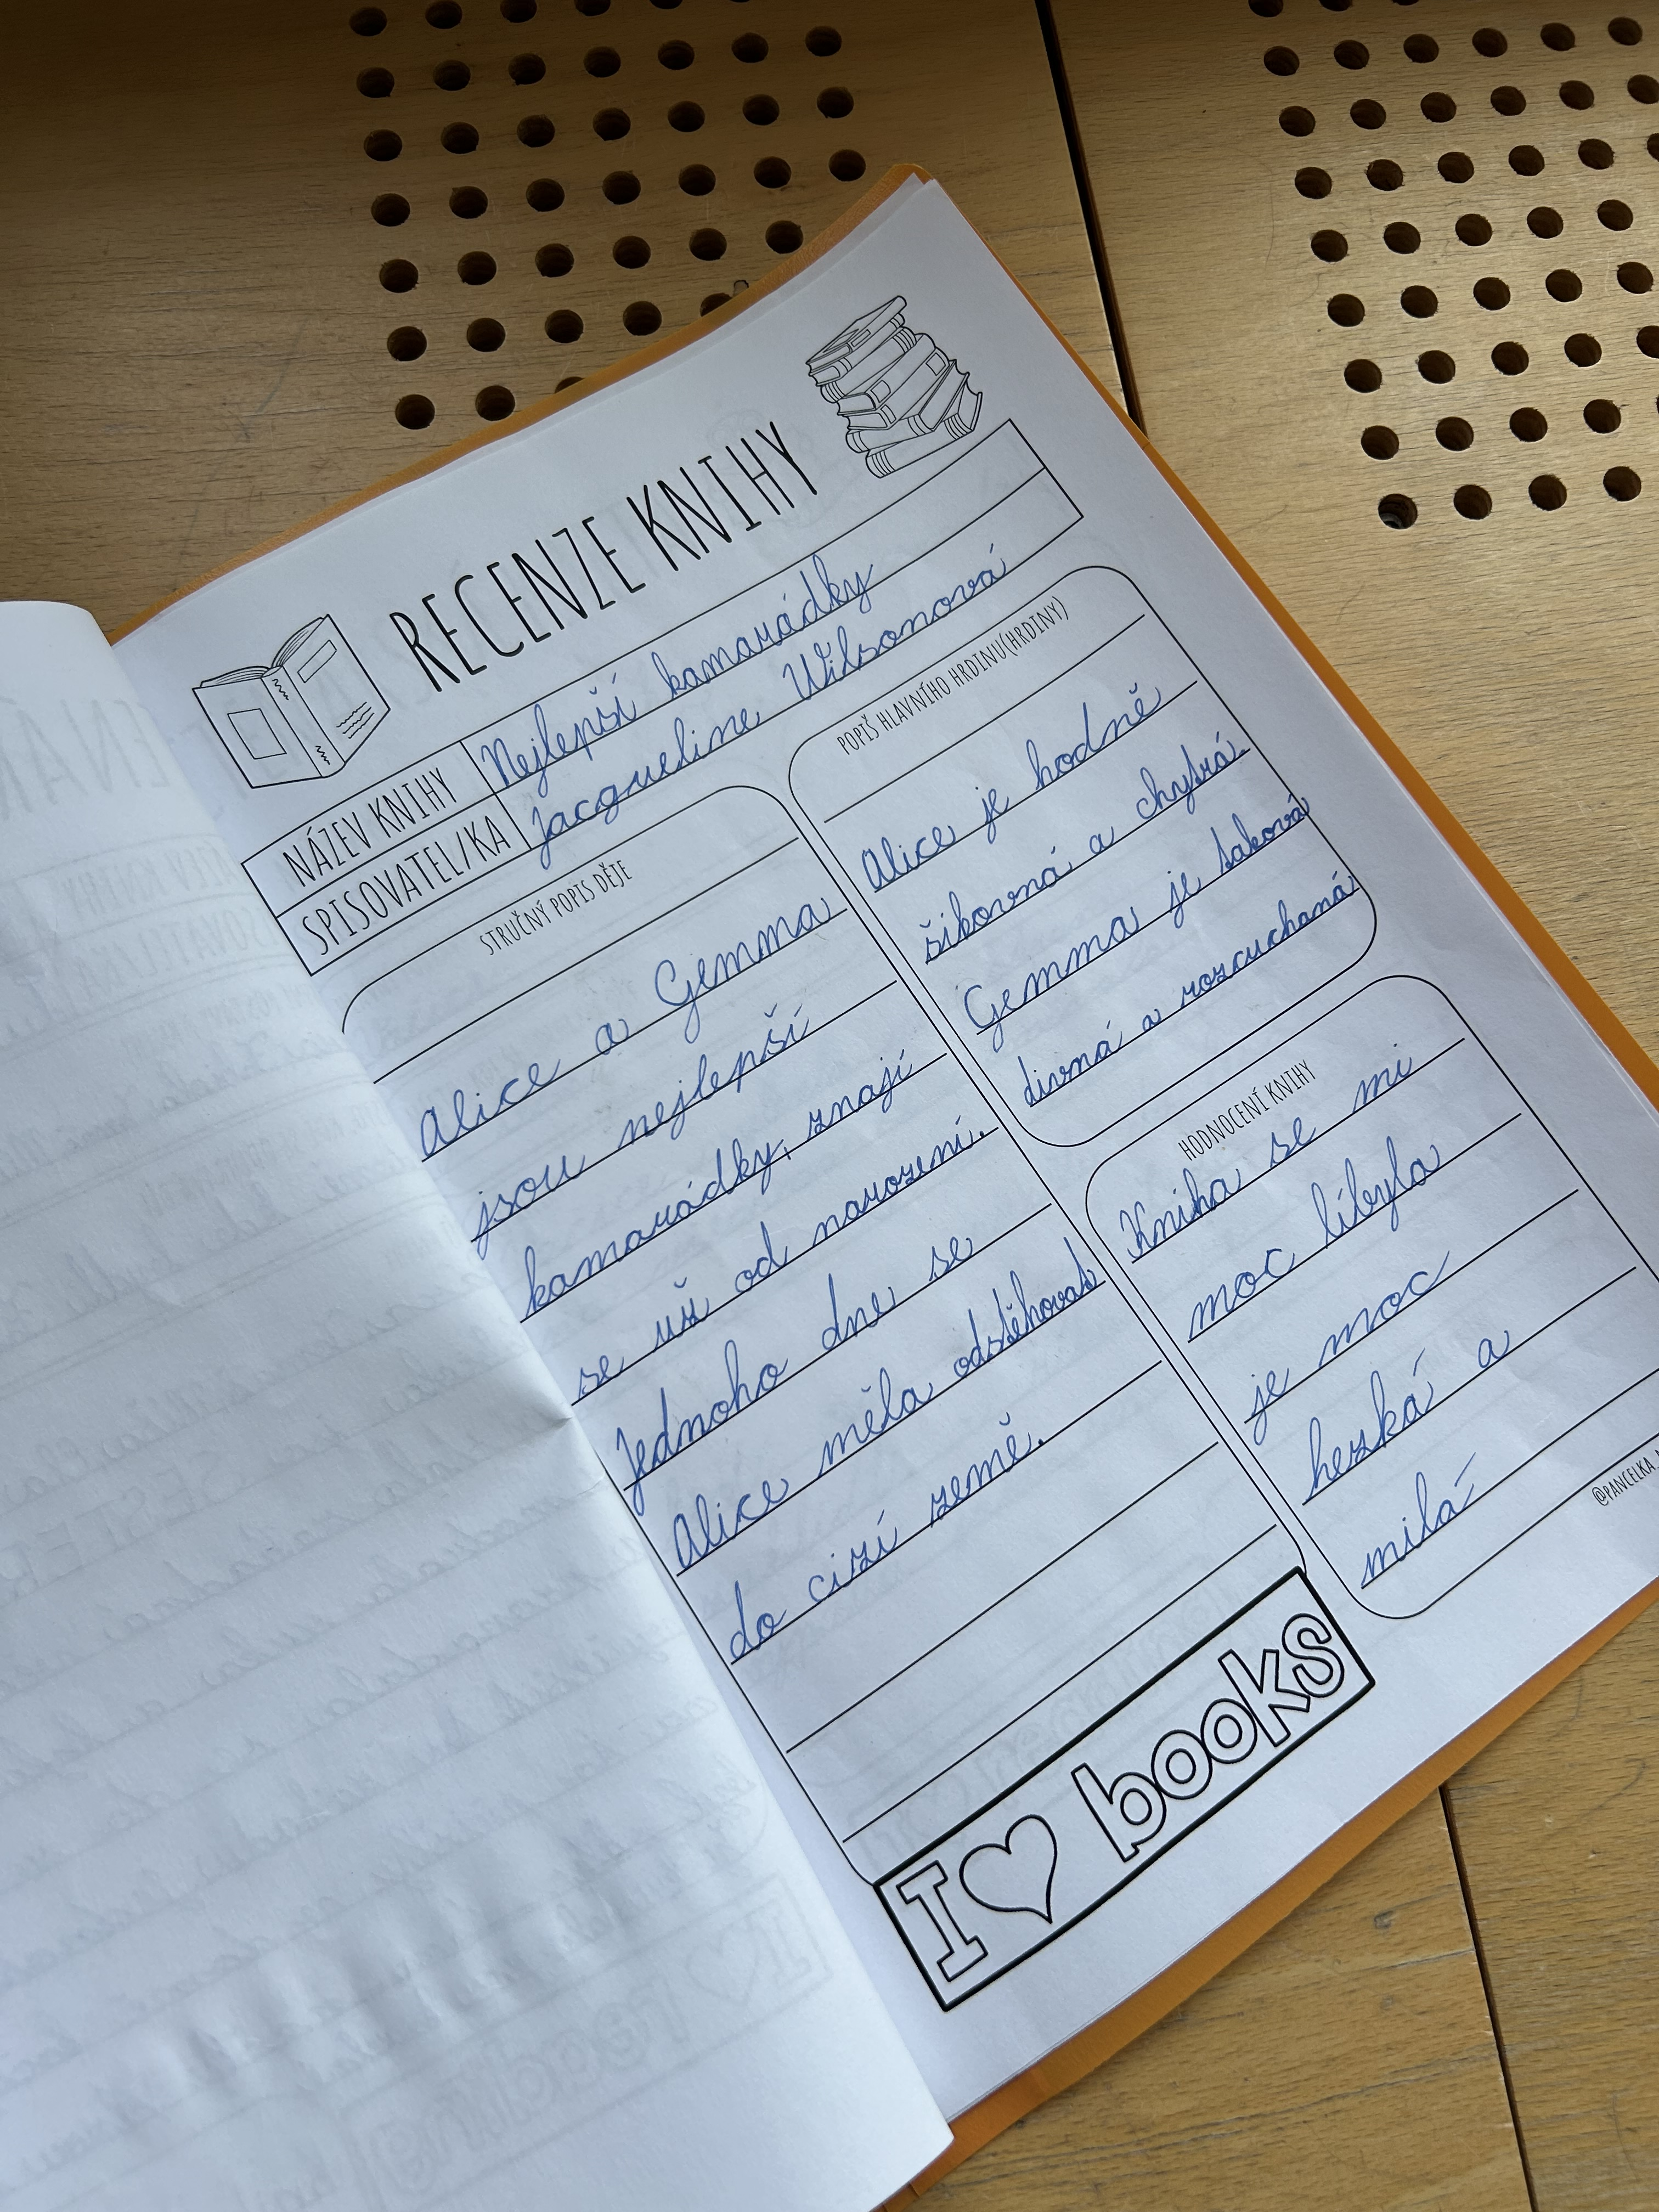 RECENZE KNIHY
NÁZEV KNIHY Nejlepší kamarádky
SPISOVATEL/KA Jacqueline Wilsonová
STRUČNÝ POPIS DĚJE
Alice a Gemma
jsou nejlepší
kamarádky, znají
se už od narození.
Jednoho dne se
Alice měla odstěhovat
do cizí země.
POPIŠ HLAVNÍHO HRDINU(HRDINY)
Alice je hodně
šikovná a chytrá.
Gemma je taková
divná a rozcuchaná
HODNOCENÍ KNIHY
Kniha se mi
moc líbyla
je moc
hezká a
milá
I ♡ books